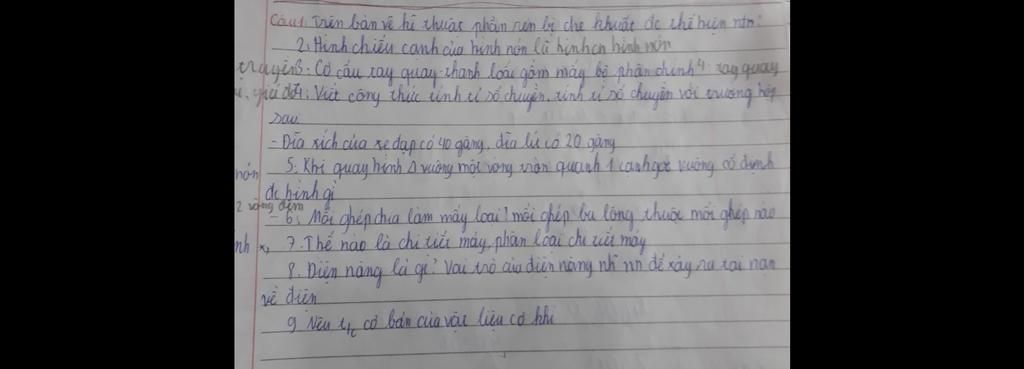 Câu1. Trên bản vẽ kĩ thuật phần ren bị che khuất đc thể hiện ntn?
2. Hình chiếu cạnh của hình nón là hình hình nón
3. Cơ cấu tay quay-thanh lắc gồm mấy bộ phận chính 4 tay quay
giá đỡ 4. Viết công thức tính tỉ số chuyền, tính tỉ số chuyền với trường hợp
sau.
- Đĩa xích của xe đạp có 40 găng, đĩa líp có 20 găng
nón 5. Khi quay hình Δ vuông một vòng tròn quanh 1 cạnh góc vuông cố định
đc hình gì
2 vòng đệm - 6. Mối ghép chia làm mấy loại? mối ghép bu lông thuộc mối ghép nào
7. Thế nào là chi tiết máy, phân loại chi tiết máy
8. Điện năng là gì? Vai trò của điện năng để xảy ra tai nạn
về điện
9 Nêu t/c cơ bản của vật liệu cơ khí